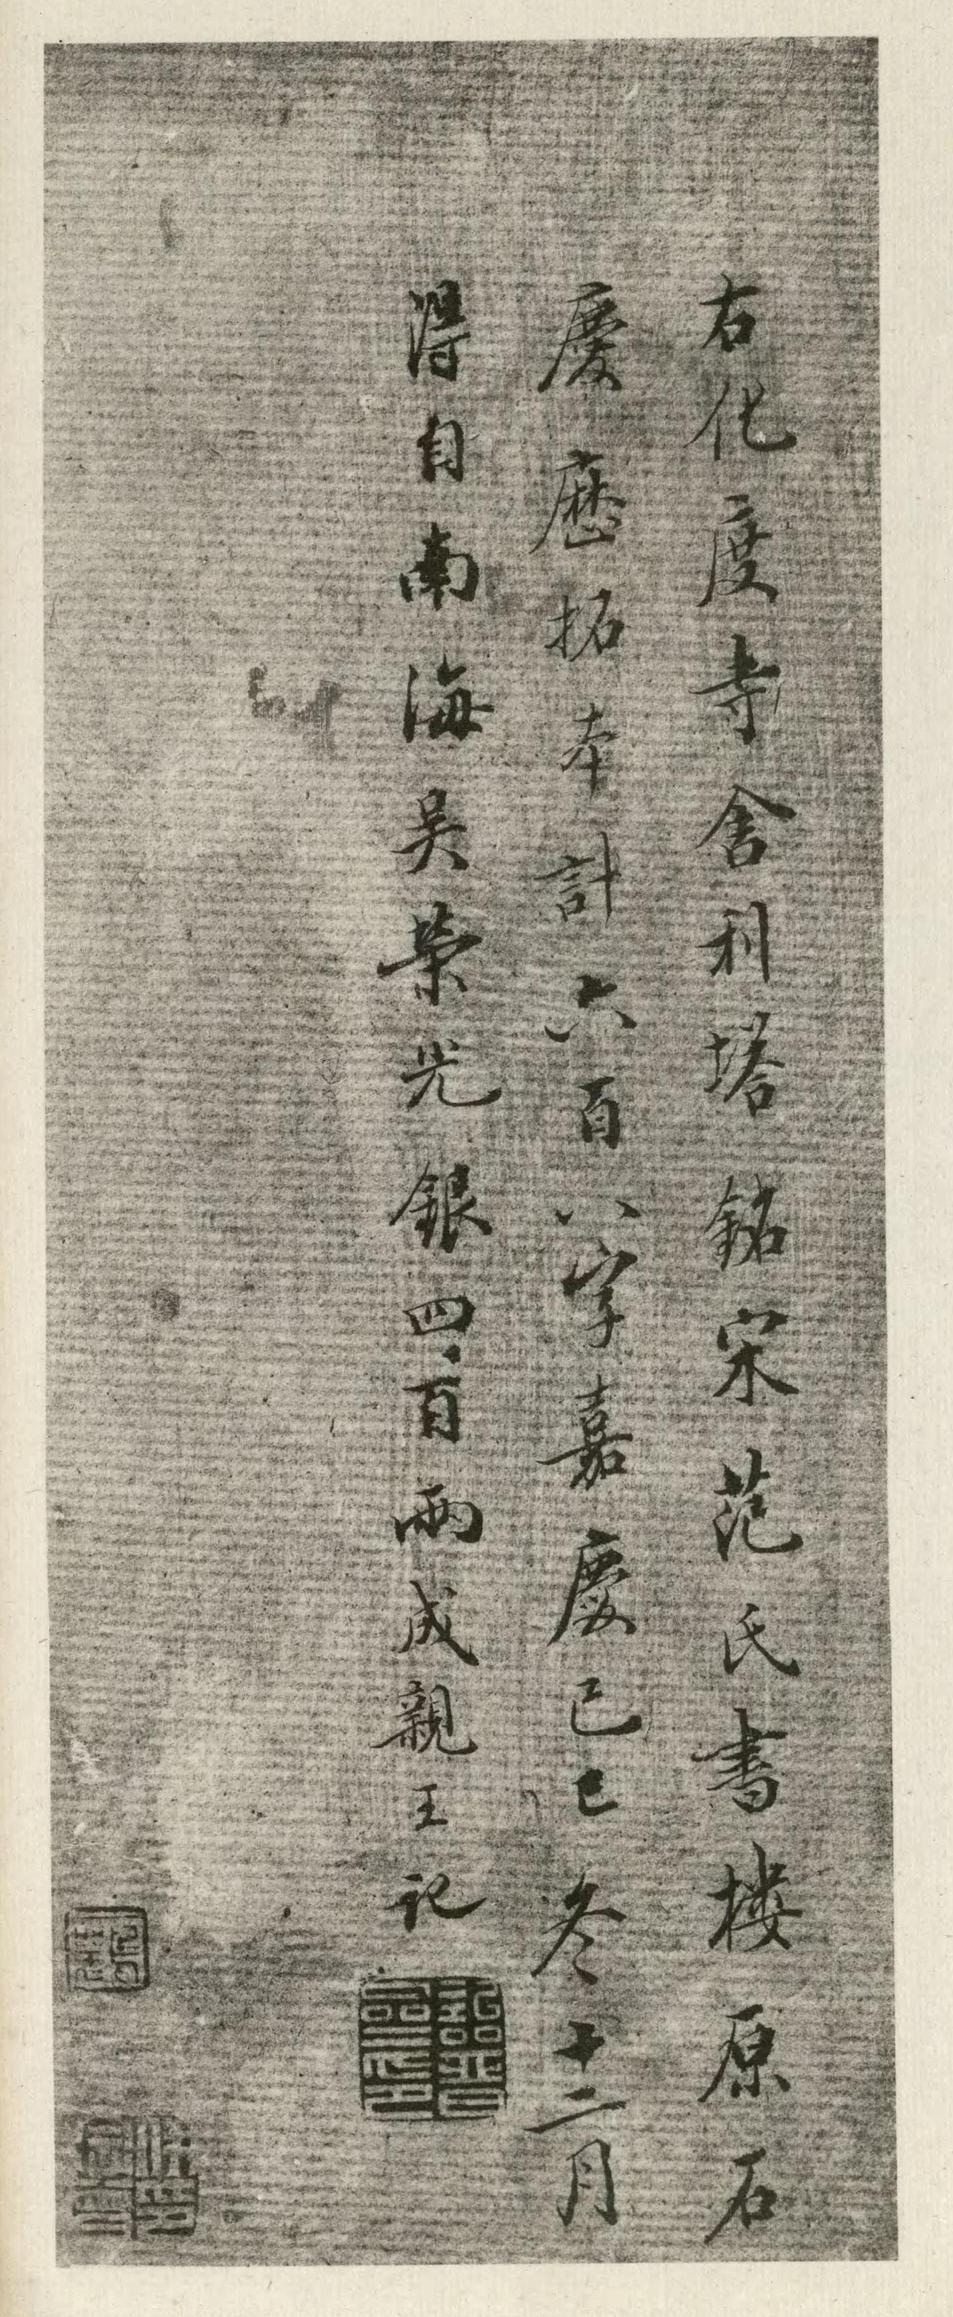 右化度寺舍利塔銘宋范氏書楼原石
慶歷拓本計六百八字嘉慶己巳冬十二月
得自南海吴榮光銀四百兩成親王記